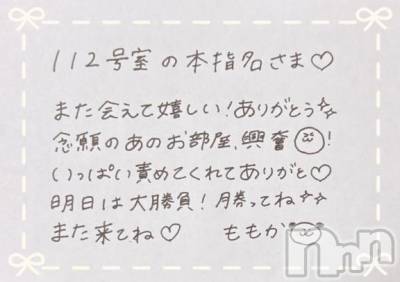 112号室の本指名さま♡
また会えて嬉しい!ありがとう☆
念願のあのお部屋、興奮!
いっぱい責めてくれてありがと♡
明日は大勝負!勝ってね☆☆
また来てね♡ ももか